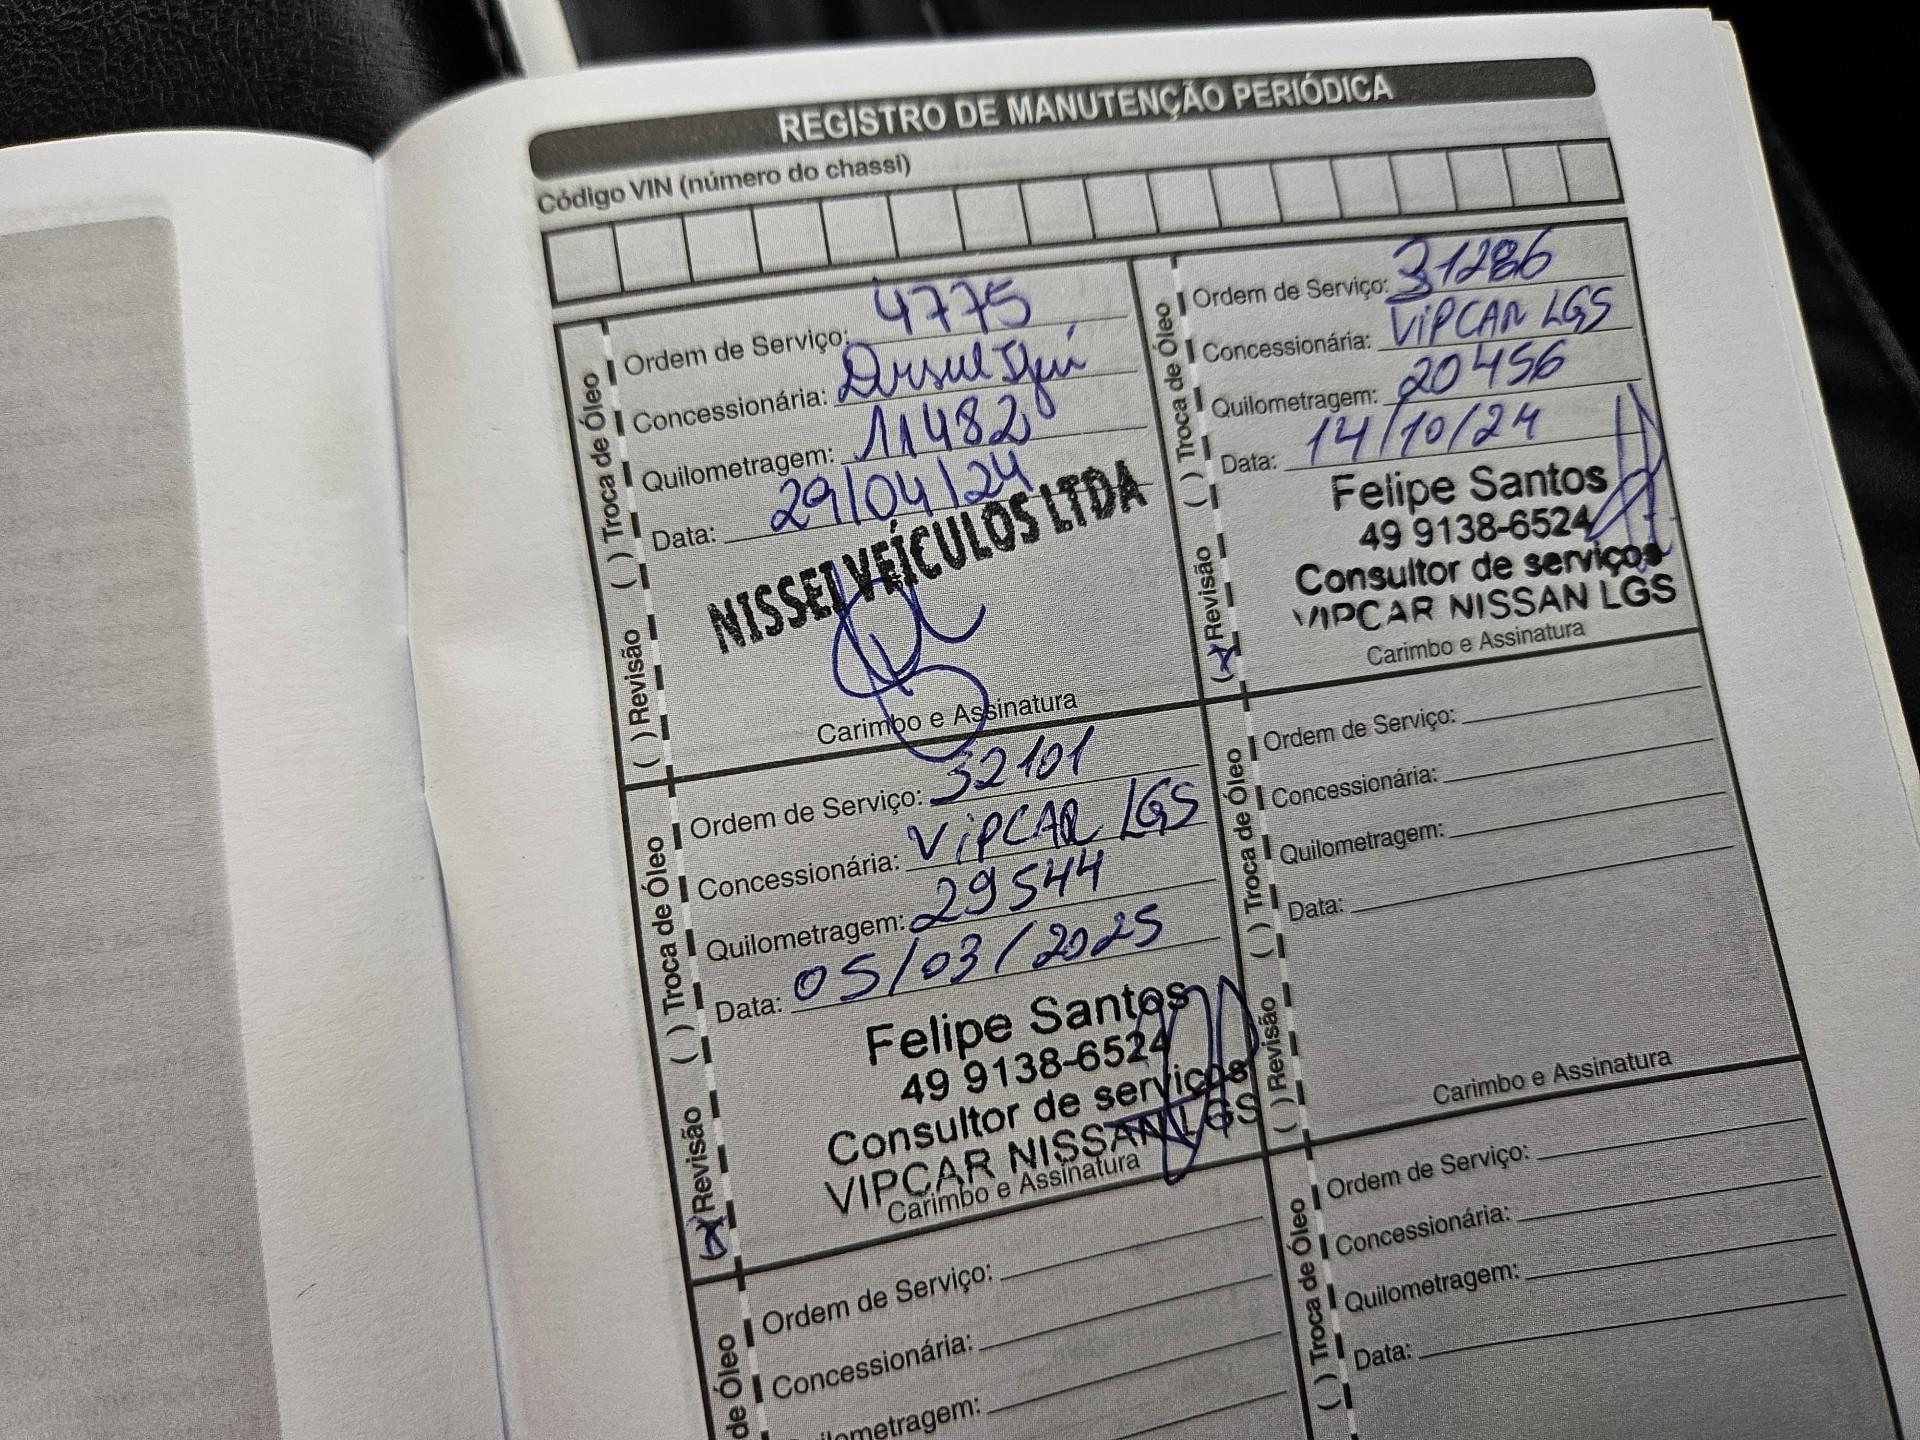 REGISTRO DE MANUTENÇÃO PERIÓDICA
Código VIN (número do chassi)
( ) Revisão ( ) Troca de Óleo
Ordem de Serviço: 4775
Concessionária:
Quilometragem: 11482
Data: 29/04/24
NISSEI VEÍCULOS LTDA
Carimbo e Assinatura
(x) Revisão ( ) Troca de Óleo
Ordem de Serviço: 31286
Concessionária: VIPCAR LGS
Quilometragem: 20456
Data: 14/10/24
Felipe Santos
49 9138-6524
Consultor de serviços
VIPCAR NISSAN LGS
Carimbo e Assinatura
(x) Revisão ( ) Troca de Óleo
Ordem de Serviço: 32101
Concessionária: VIPCAR LGS
Quilometragem: 29544
Data: 05/03/2025
Felipe Santos
49 9138-6524
Consultor de serviços
VIPCAR NISSAN LGS
Carimbo e Assinatura
( ) Revisão ( ) Troca de Óleo
Ordem de Serviço:
Concessionária:
Quilometragem:
Data:
Carimbo e Assinatura
de Óleo
Ordem de Serviço:
Concessionária:
ilometragem:
( ) Troca de Óleo
Ordem de Serviço:
Concessionária:
Quilometragem:
Data: